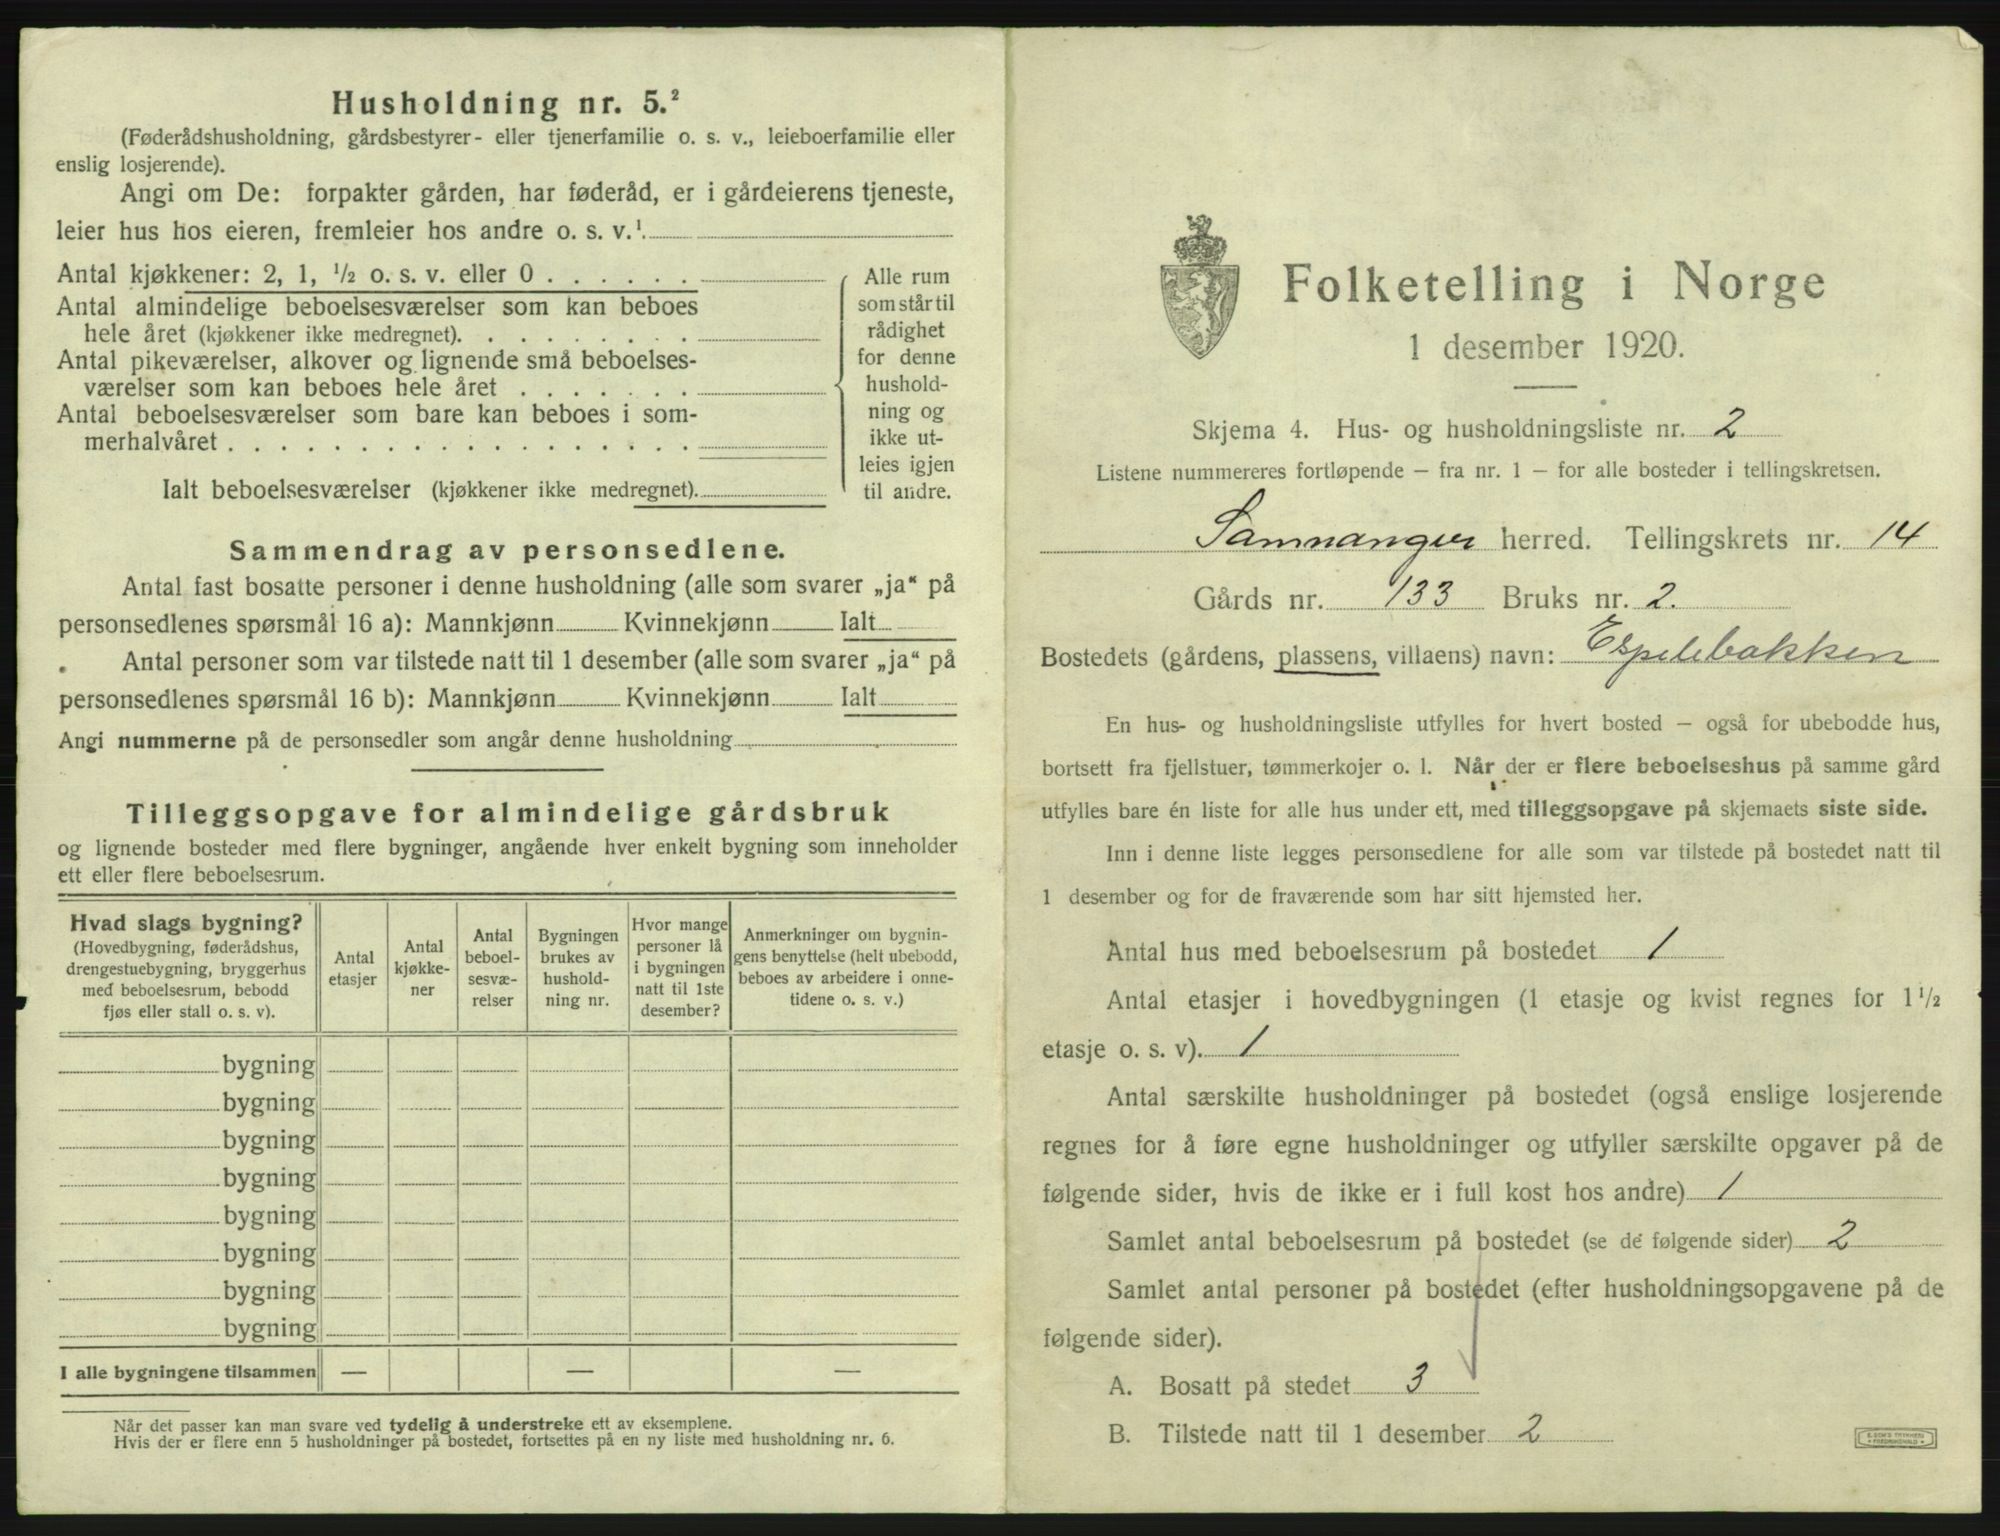 Husholdning nr. 5.²
(Føderådshusholdning, gårdsbestyrer- eller tjenerfamilie o. s. v., leieboerfamilie eller
enslig losjerende).
Angi om De: forpakter gården, har føderåd, er i gårdeierens tjeneste,
leier hus hos eieren, fremleier hos andre o. s. v.¹
Antal kjøkkener: 2, 1, ½ o. s. v. eller 0
Antal almindelige beboelsesværelser som kan beboes
hele året (kjøkkener ikke medregnet).
Antal pikeværelser, alkover og lignende små beboelses-
værelser som kan beboes hele året
Antal beboelsesværelser som bare kan beboes i som-
merhalvåret
Ialt beboelsesværelser (kjøkkener ikke medregnet).
Alle rum
som står til
rådighet
for denne
hushold-
ning og
ikke ut-
leies igjen
til andre.
Sammendrag av personsedlene.
Antal fast bosatte personer i denne husholdning (alle som svarer „ja“ på
personsedlenes spørsmål 16 a): Mannkjønn Kvinnekjønn Ialt
Antal personer som var tilstede natt til 1 desember (alle som svarer „ja“ på
personsedlenes spørsmål 16 b): Mannkjønn Kvinnekjønn Ialt
Angi nummerne på de personsedler som angår denne husholdning
Tilleggsopgave for almindelige gårdsbruk
og lignende bosteder med flere bygninger, angående hver enkelt bygning som inneholder
ett eller flere beboelsesrum.
Hvad slags bygning?
(Hovedbygning, føderådshus,
drengestuebygning, bryggerhus
med beboelsesrum, bebodd
fjøs eller stall o. s. v).
Antal
etasjer
Antal
kjøkke-
ner
Antal
beboel-
sesvæ-
relser
Bygningen
brukes av
hushold-
ning nr.
Hvor mange
personer lå
i bygningen
natt til 1ste
desember?
Anmerkninger om bygnin-
gens benyttelse (helt ubebodd,
beboes av arbeidere i onne-
tidene o. s. v.)
bygning
bygning
bygning
bygning
bygning
bygning
bygning
bygning
I alle bygningene tilsammen — — —
Når det passer kan man svare ved tydelig å understreke ett av eksemplene.
Hvis der er flere enn 5 husholdninger på bostedet, fortsettes på en ny liste med husholdning nr. 6.
Folketelling i Norge
1 desember 1920.
Skjema 4. Hus- og husholdningsliste nr. 2
Listene nummereres fortløpende — fra nr. 1 — for alle bosteder i tellingskretsen.
Samnanger herred. Tellingskrets nr. 14
Gårds nr. 133 Bruks nr. 2.
Bostedets (gårdens, plassens, villaens) navn: Espelebakken
En hus- og husholdningsliste utfylles for hvert bosted — også for ubebodde hus,
bortsett fra fjellstuer, tømmerkojer o. l. Når der er flere beboelseshus på samme gård
utfylles bare én liste for alle hus under ett, med tilleggsopgave på skjemaets siste side.
Inn i denne liste legges personsedlene for alle som var tilstede på bostedet natt til
1 desember og for de fraværende som har sitt hjemsted her.
Antal hus med beboelsesrum på bostedet 1
Antal etasjer i hovedbygningen (1 etasje og kvist regnes for 1 ½
etasje o. s. v). 1
Antal særskilte husholdninger på bostedet (også enslige losjerende
regnes for å føre egne husholdninger og utfyller særskilte opgaver på de
følgende sider, hvis de ikke er i full kost hos andre) 1
Samlet antal beboelsesrum på bostedet (se de følgende sider) 2
Samlet antal personer på bostedet (efter husholdningsopgavene på de
følgende sider).
A. Bosatt på stedet 3
B. Tilstede natt til 1 desember 2